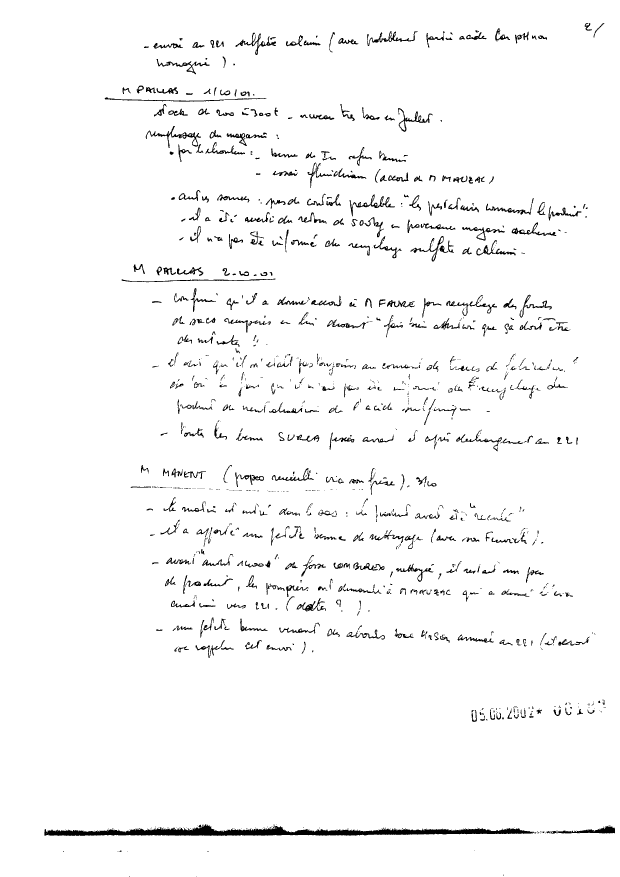 2/
- envoi au 221 sulfate calcium (avec probablement partie acide car pH non
homogène).
M PALLAS - 1/10/01.
stock de 200 à 300t - niveau très bas en Juillet.
remplissage du magasin :
- benne de
- essai fluidiram (accord de M MAUZAC)
• autres sources : pas de contrôle préalable : "les prestataires connaissent le produit".
- il a été averti du retour de 500kg en provenance magasin
- il n'a pas été informé du recyclage sulfate de calcium.
M PALLAS 2-10-01
- Confirme qu'il a donné accord à M FAURE pour recyclage des fonds
de sacs récupérés en lui disant "fais bien attention que ça doit être
des nitrates".
- il dit qu'il n'était pas toujours au courant de
le fait qu'il n'ait pas été informé du recyclage du
produit de neutralisation de l'acide sulfurique.
- toutes les bennes SURCA pesées avant et après déchargement au 221
M MANENT (propos recueilli via son frère). 3/10
- le matin est entré dans le sas : le produit avait été "reculé"
- il a apporté une petite benne de nettoyage (avec son Fenwick).
- avant de fosse, nettoyé, il restait un peu
de produit, les pompiers ont demandé à M MAUZAC qui a donné
vers 221. (dates ?).
- une petite benne venant des abords amenée au 221 (il devait
se rappeler cet envoi).
05.06.2002*